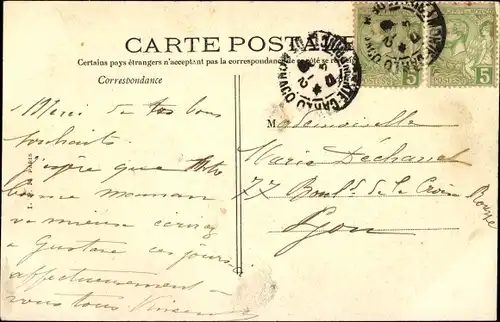 CARTE POSTALE
Certains pays étrangers n'acceptant pas la correspondance de ce côté se
Correspondance
5
5
Merci de tes bons
souhaits.
J'espère que
bonne maman
va mieux
à Gustave ces jours-ci
affectueusement à
vous tous
Mademoiselle
Marie Déchanet
77 Boul.d de la Croix Rousse
Lyon